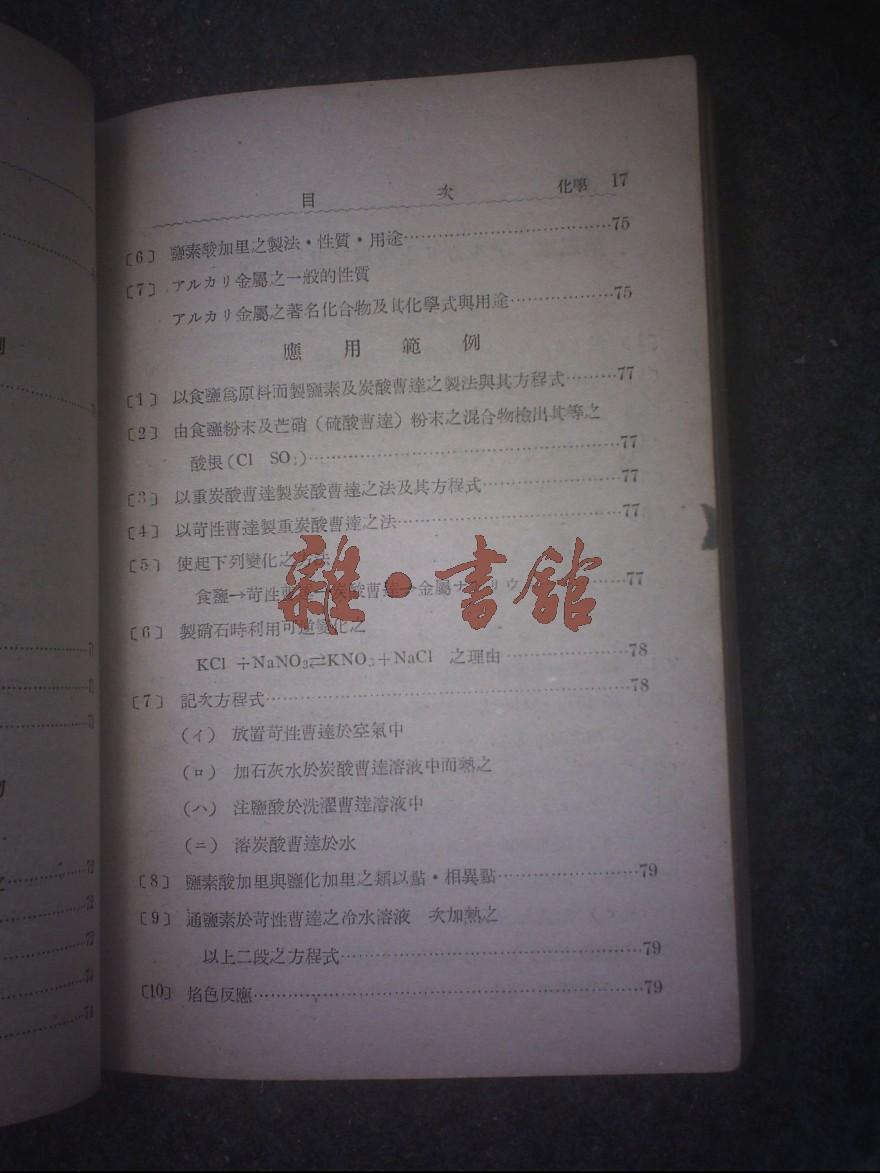 目 次 化學 17
〔6〕 鹽素酸加里之製法・性質・用途…………75
〔7〕 アルカリ金屬之一般的性質
アルカリ金屬之著名化合物及其化學式與用途…………75
應用範例
〔1〕 以食鹽爲原料而製鹽素及炭酸曹達之製法與其方程式………77
〔2〕 由食鹽粉末及芒硝（硫酸曹達）粉末之混合物檢出其等之
酸根(Cl SO₄)…………77
〔3〕 以重炭酸曹達製炭酸曹達之法及其方程式…………77
〔4〕 以苛性曹達製重炭酸曹達之法…………77
〔5〕 使起下列變化之方法
食鹽→苛性曹達→炭酸曹達→金屬ナトリウ…………77
〔6〕 製硝石時利用可逆變化之
KCl +NaNO₃⇄KNO₃+NaCl 之理由…………78
〔7〕 記次方程式…………78
(イ) 放置苛性曹達於空氣中
(ロ) 加石灰水於炭酸曹達溶液中而熱之
(ハ) 注鹽酸於洗濯曹達溶液中
(ニ) 溶炭酸曹達於水
〔8〕 鹽素酸加里與鹽化加里之類似點・相異點…………79
〔9〕 通鹽素於苛性曹達之冷水溶液 次加熱之
以上二段之方程式…………79
〔10〕 焰色反應…………79
雜・書館